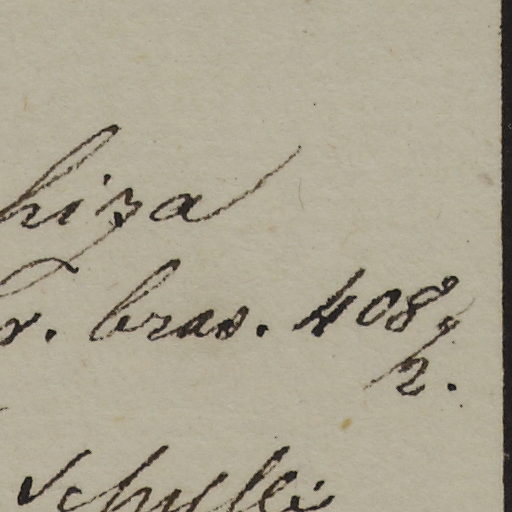 hiza
r. bras. 408,
2.
Schylli